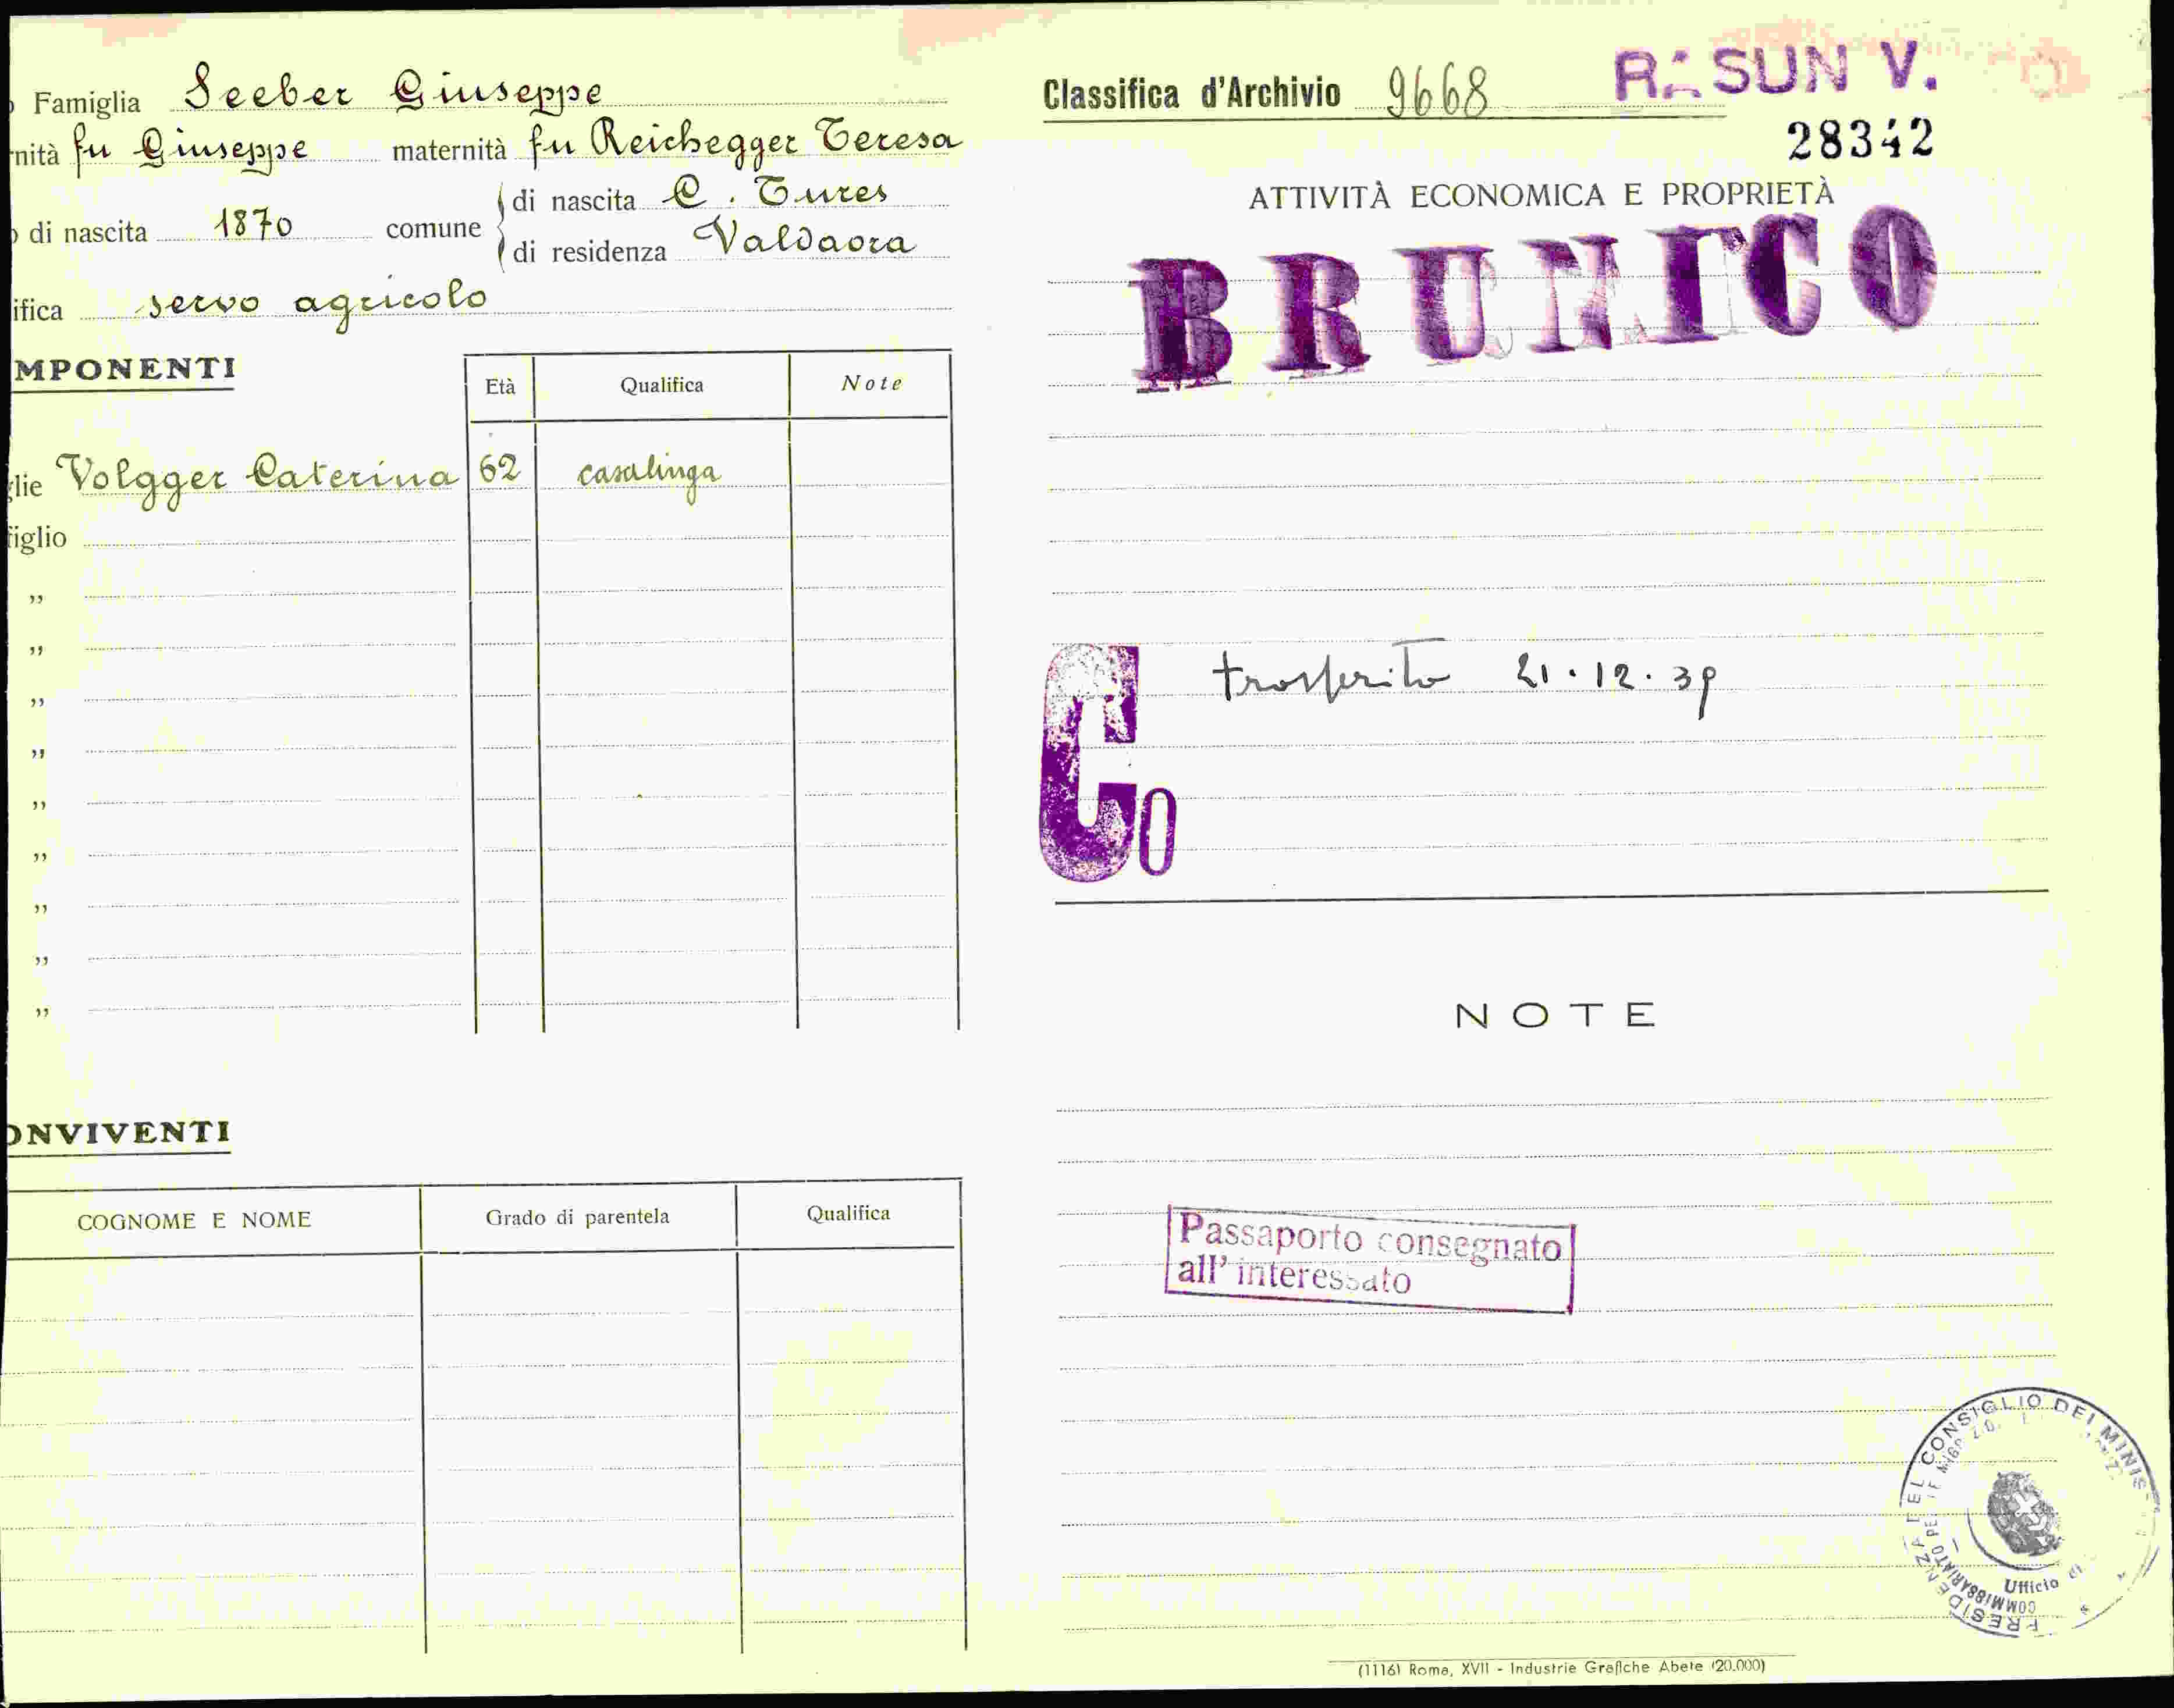 Famiglia Seeber Giuseppe
nità fu Giuseppe maternità fu Reichegger Teresa
di nascita 1870 comune di nascita C. Tures
di residenza Valdaora
ifica servo agricolo
MPONENTI
Età Qualifica Note
glie Volgger Caterina 62 casalinga
figlio
”
”
”
”
”
”
”
”
”
ONVIVENTI
COGNOME E NOME Grado di parentela Qualifica
Classifica d'Archivio 9668
RASUN V.
28342
ATTIVITÀ ECONOMICA E PROPRIETÀ
BRUNICO
trasferito 21.12.39
Co
NOTE
Passaporto consegnato
all'interessato
CONSIGLIO DEI MINIS
Ufficio
(1116) Roma, XVII - Industrie Grafiche Abete (20.000)